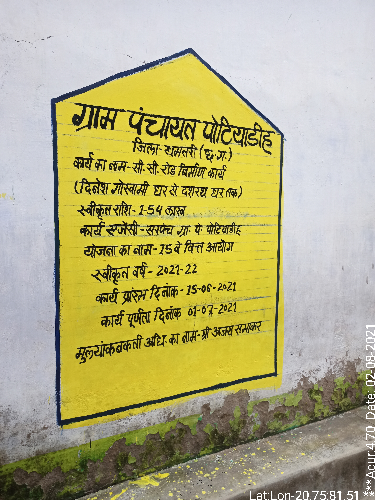 ग्राम पंचायत पोटियाडीह
जिला-धमतरी (छ.ग.)
कार्य का नाम-सी.सी.रोड निर्माण कार्य
(दिनेश गोस्वामी घर से दशरथ घर तक)
स्वीकृत राशि-1.54 लाख
कार्य एजेंसी-सरपंच ग्रा.पं. पोटियाडीह
योजना का नाम-15 वे वित्त आयोग
स्वीकृत वर्ष-2021-22
कार्य प्रारंभ दिनांक-15-06-2021
कार्य पूर्णता दिनांक 01-07-2021
मुल्यांकनकर्ता अधि. का नाम-श्री अजय
Lat:Lon-20.75:81.51
***Acur:4.70 Date:02-08-2021